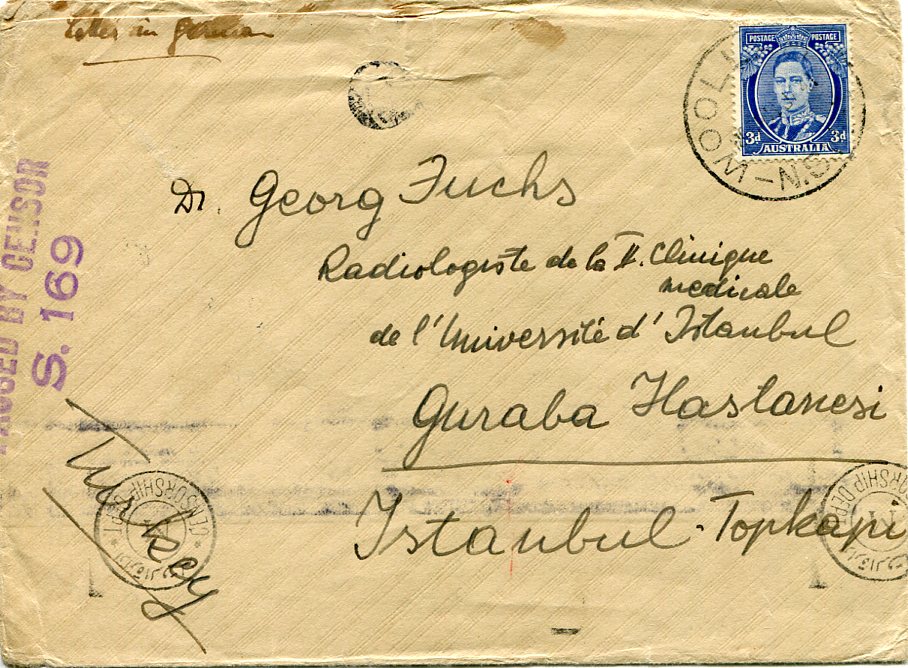 Letter in German
POSTAGE POSTAGE
3d 3d
AUSTRALIA
WOOLL
N.S.
PASSED BY CENSOR
S. 169
Dr. Georg Fuchs
Radiologiste de la II. Clinique
medicale
de l'Université d'Istanbul
Guraba Hastanesi
Istanbul-Topkapi
Turkey
CENSORSHIP DEPT.
ORSHIP DEPT